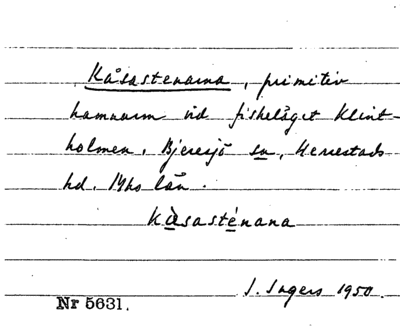 Kåsastenarna, primitiv
hamnarm vid fiskeläget Klint-
holmen, Bjeresjö sn, Herrestads
hd. Mhs län.
Kåsasténana
I. Ingers 1950.
Nr 5631.